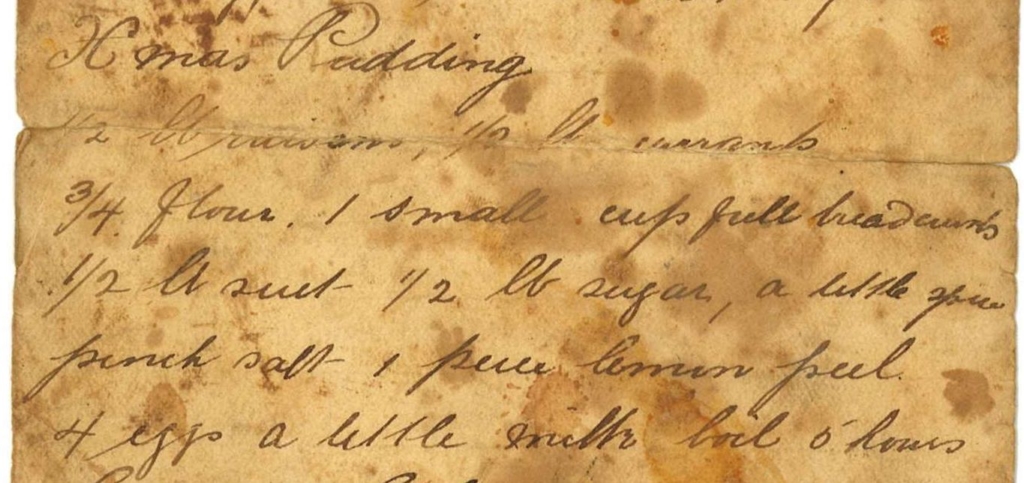 Xmas Pudding
1/2 lb raisins, 1/2 lb currants
3/4 flour. 1 small cup full breadcrumbs
1/2 lb suet 1/2 lb sugar, a little spice
pinch salt 1 piece lemon peel.
4 eggs a little milk boil 6 hours